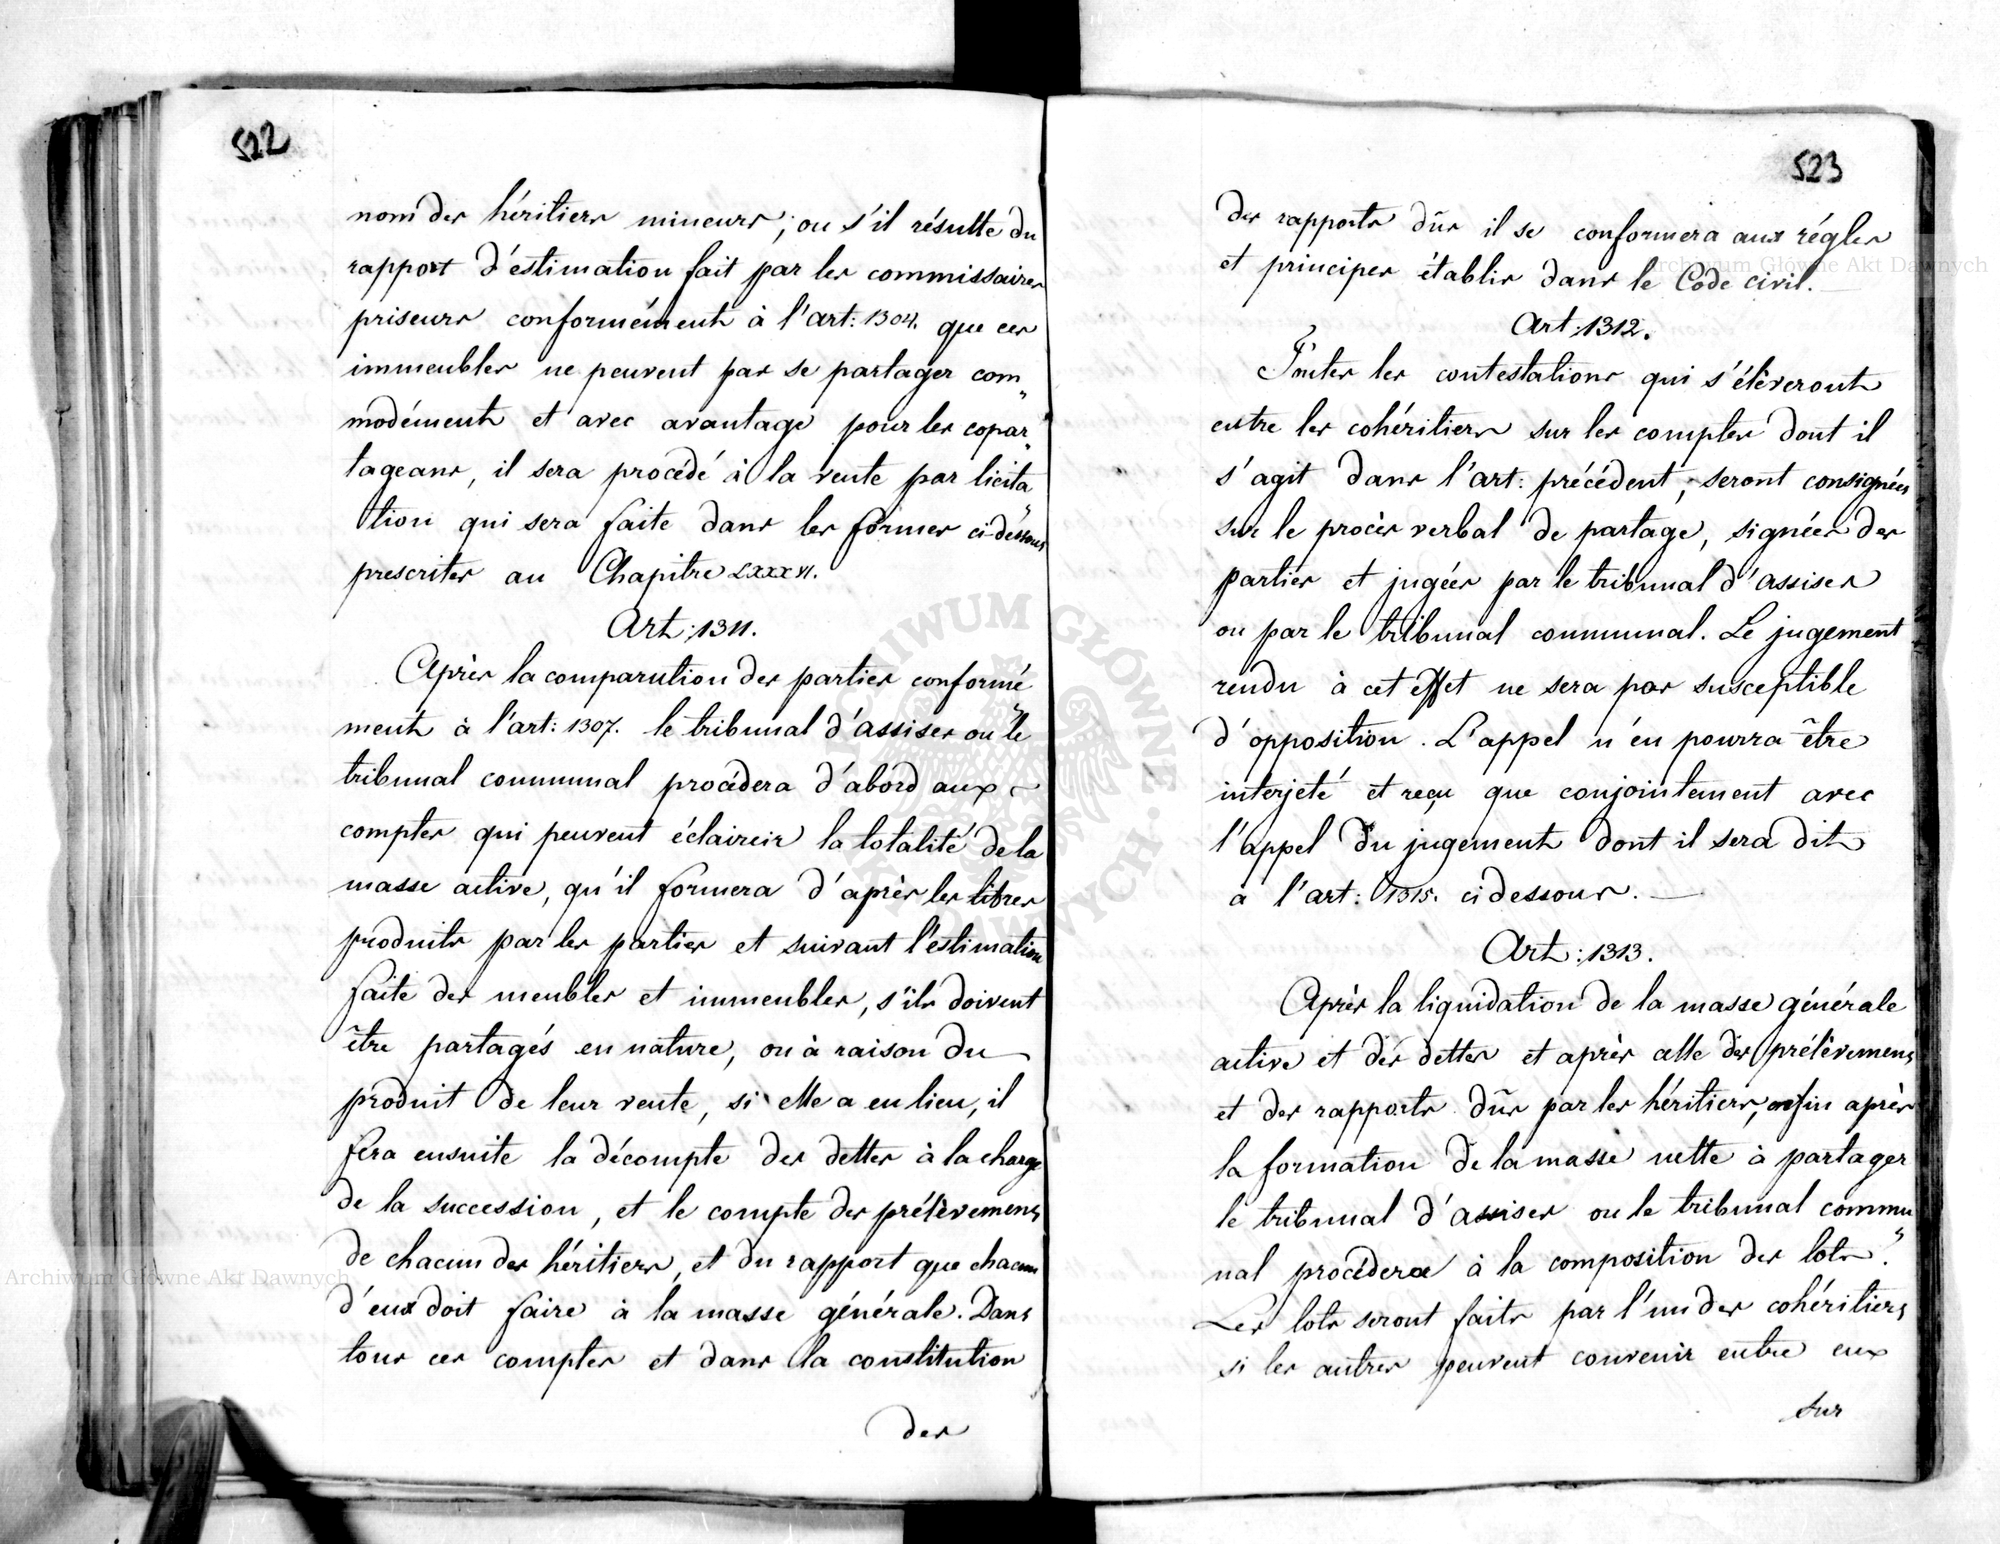 522
nom des héritiers mineurs; ou s'il résulte du
rapport d'estimation fait par les commissaires
priseurs conformément à l'art: 1304. que ces
immeubles ne peuvent pas se partager com„
modément et avec avantage pour les copar„
tageans, il sera procédé à la vente par licita„
tion qui sera faite dans les formes ci-dessous
prescrites au Chapitre LXXXVI.
Art: 1311.
Après la comparution des parties conformé„
ment à l'art: 1307. le tribunal d'assises ou le
tribunal communal procédera d'abord aux
comptes qui peuvent éclaircir la totalité de la
masse active, qu'il formera d'après les titres
produits par les parties et suivant l'estimation
faite des meubles et immeubles, s'ils doivent
être partagés en nature, ou à raison du
produit de leur vente, si elle a eu lieu, il
fera ensuite la décompte des dettes à la charge
de la succession, et le compte des prélèvemens
de chacun des héritiers, et du rapport que chacun
d'eux doit faire à la masse générale. Dans
tous ces comptes et dans la constitution
des
523
des rapports dûs il se conformera aux régles
et principes établis dans le Code civil.
Art: 1312.
Toutes les contestations qui s'élèveront
entre les cohéritiers sur les comptes dont il
s'agit dans l'art: précédent, seront consignées
sur le procès verbal de partage, signées des
parties et jugées par le tribunal d'assises
ou par le tribunal communal. Le jugement
rendu à cet effet ne sera pas susceptible
d'opposition. L'appel n'en pourra être
interjeté et reçu que conjointement avec
l'appel du jugement dont il sera dit
a l'art: 1315. ci dessous. —
Art: 1313.
Après la liquidation de la masse générale
active et des dettes et après celle des prélèvemens
et des rapports dûs par les héritiers, enfin après
la formation de la masse nette à partager
le tribunal d'assises ou le tribunal commu„
nal procédera à la composition des lots.
Les lots seront faits par l'un des cohéritiers
si les autres peuvent convenir entre eux
sur
Archiwum Główne Akt Dawnych
Archiwum Główne Akt Dawnych
ARCHIWUM GŁÓWNE AKT DAWNYCH